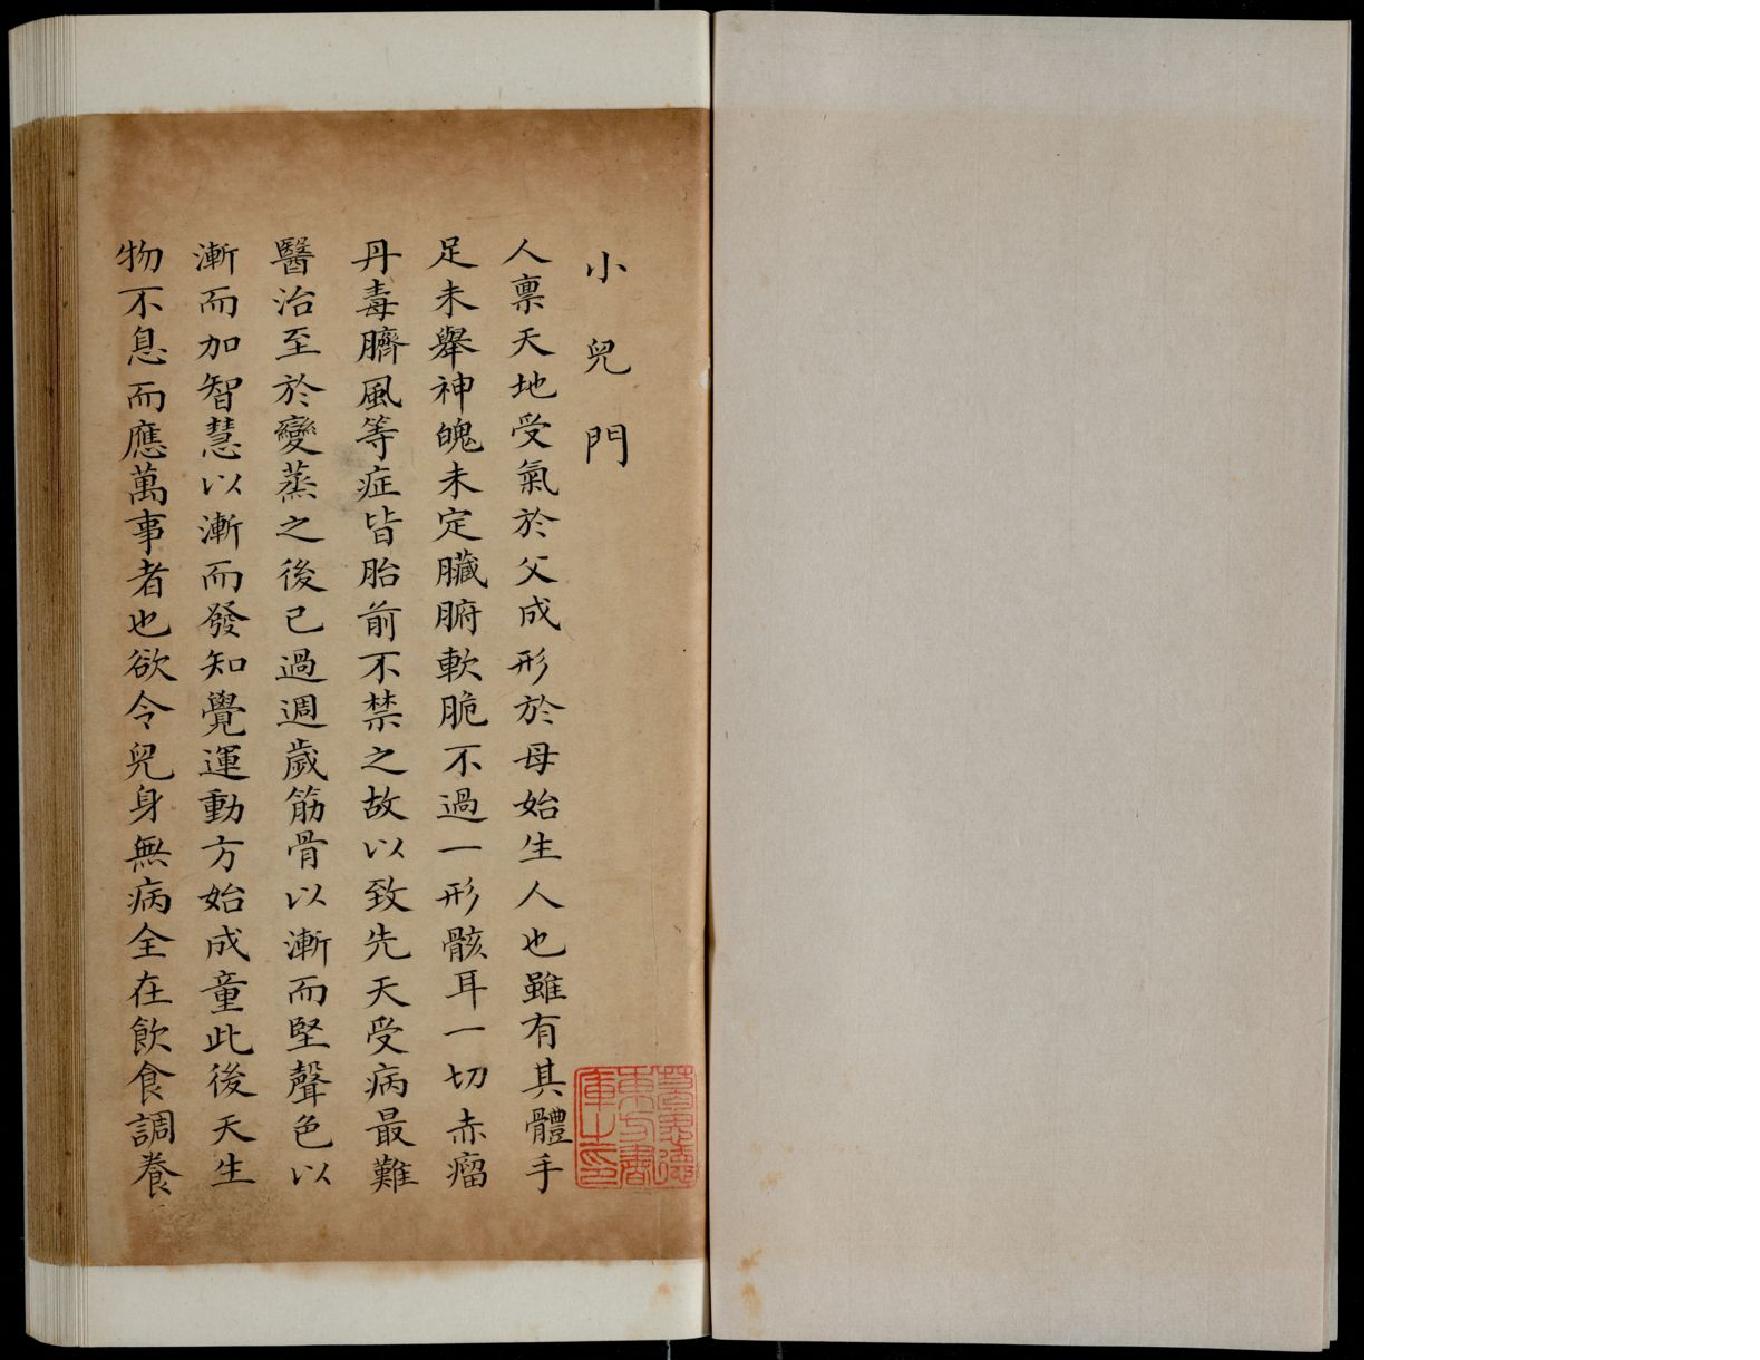 小兒門
人禀天地受氣於父成形於母始生人也雖有其體手
足未舉神魄未定臟腑軟脆不過一形骸耳一切赤瘤
丹毒臍風等症皆胎前不禁之故以致先天受病最難
醫治至於變蒸之後已過週歲筋骨以漸而堅聲色以
漸而加智慧以漸而發知覺運動方始成童此後天生
物不息而應萬事者也欲令兒身無病全在飲食調養
東方書
庫之印